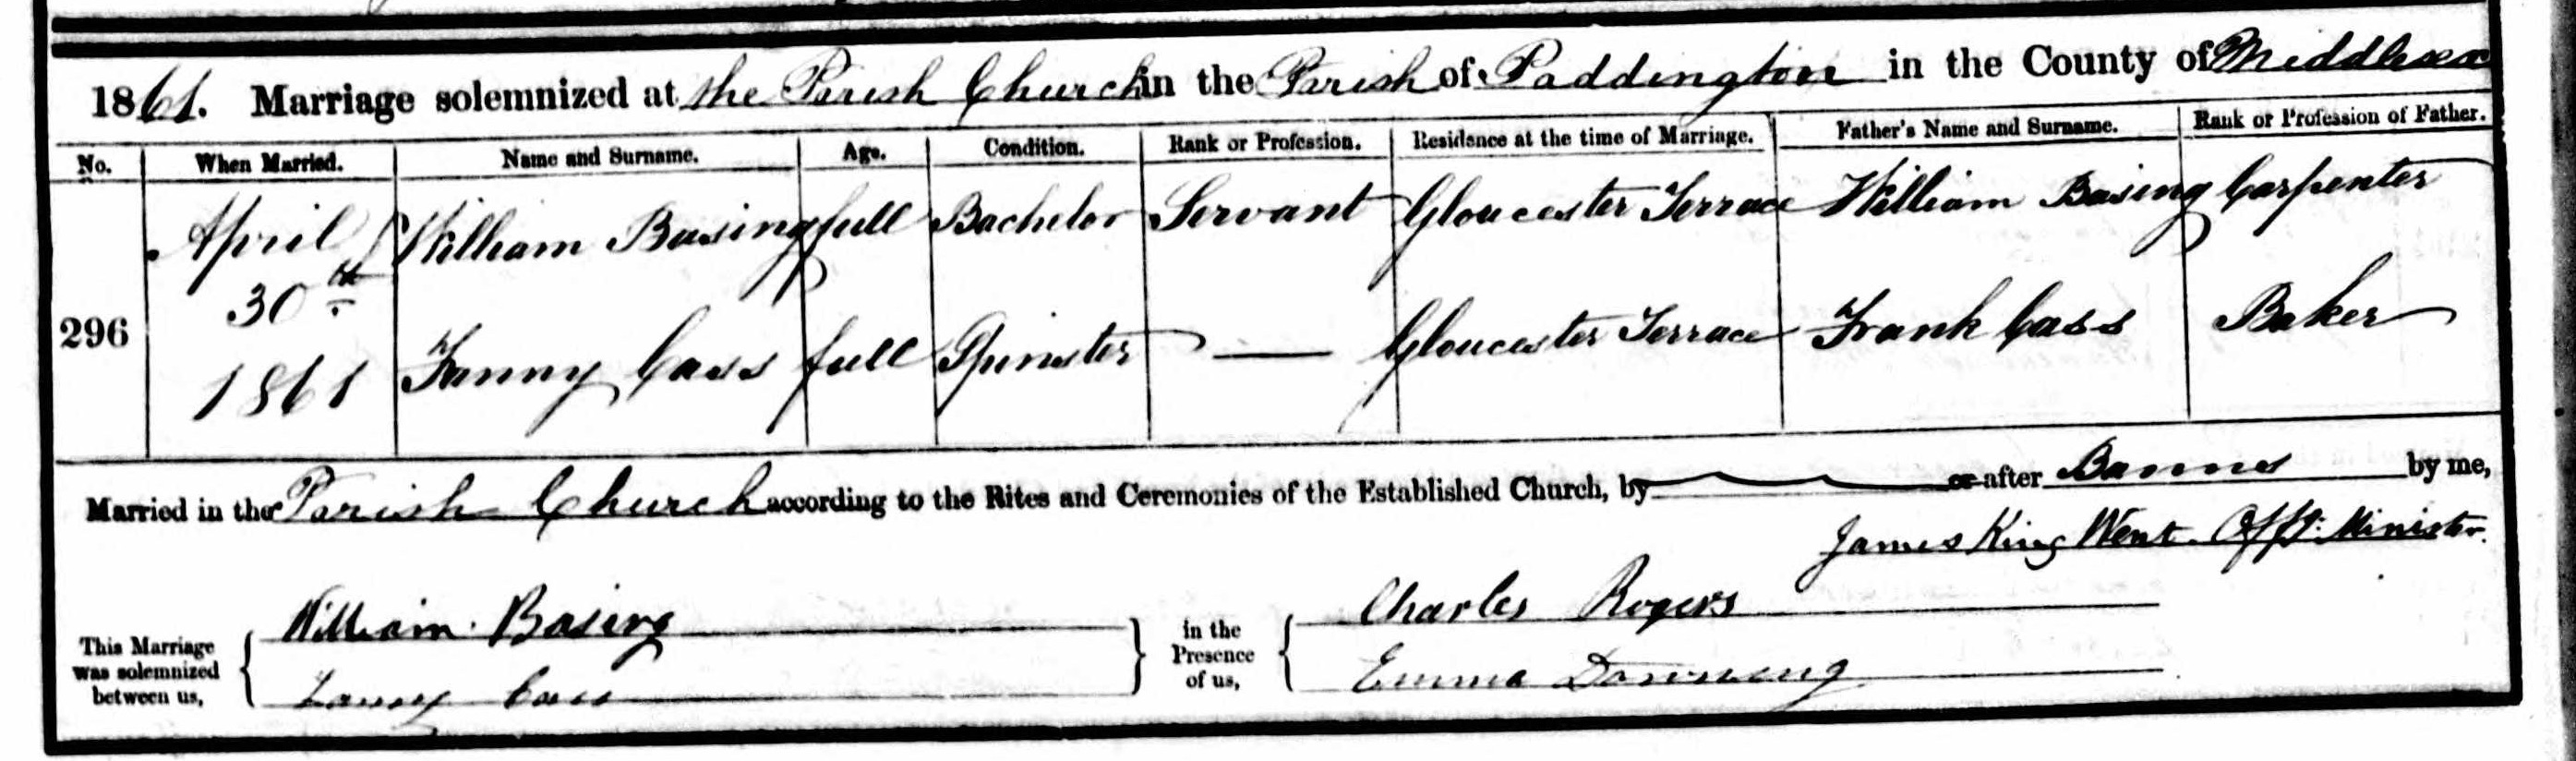 1861. Marriage solemnized at the Parish Church in the Parish of Paddington in the County of Middlesex
No. When Married. Name and Surname. Age. Condition. Rank or Profession. Residence at the time of Marriage. Father's Name and Surname. Rank or Profession of Father.
296 April 30th 1861 William Basing full Bachelor Servant Gloucester Terrace William Basing Carpenter
Fanny Cass full Spinster — Gloucester Terrace Frank Cass Baker
Married in the Parish Church according to the Rites and Ceremonies of the Established Church, by or after Banns by me,
James King Went Offg: Minister.
This Marriage was solemnized between us, William Basing in the Presence of us, Charles Rogers
Fanny Cass Emma Downing